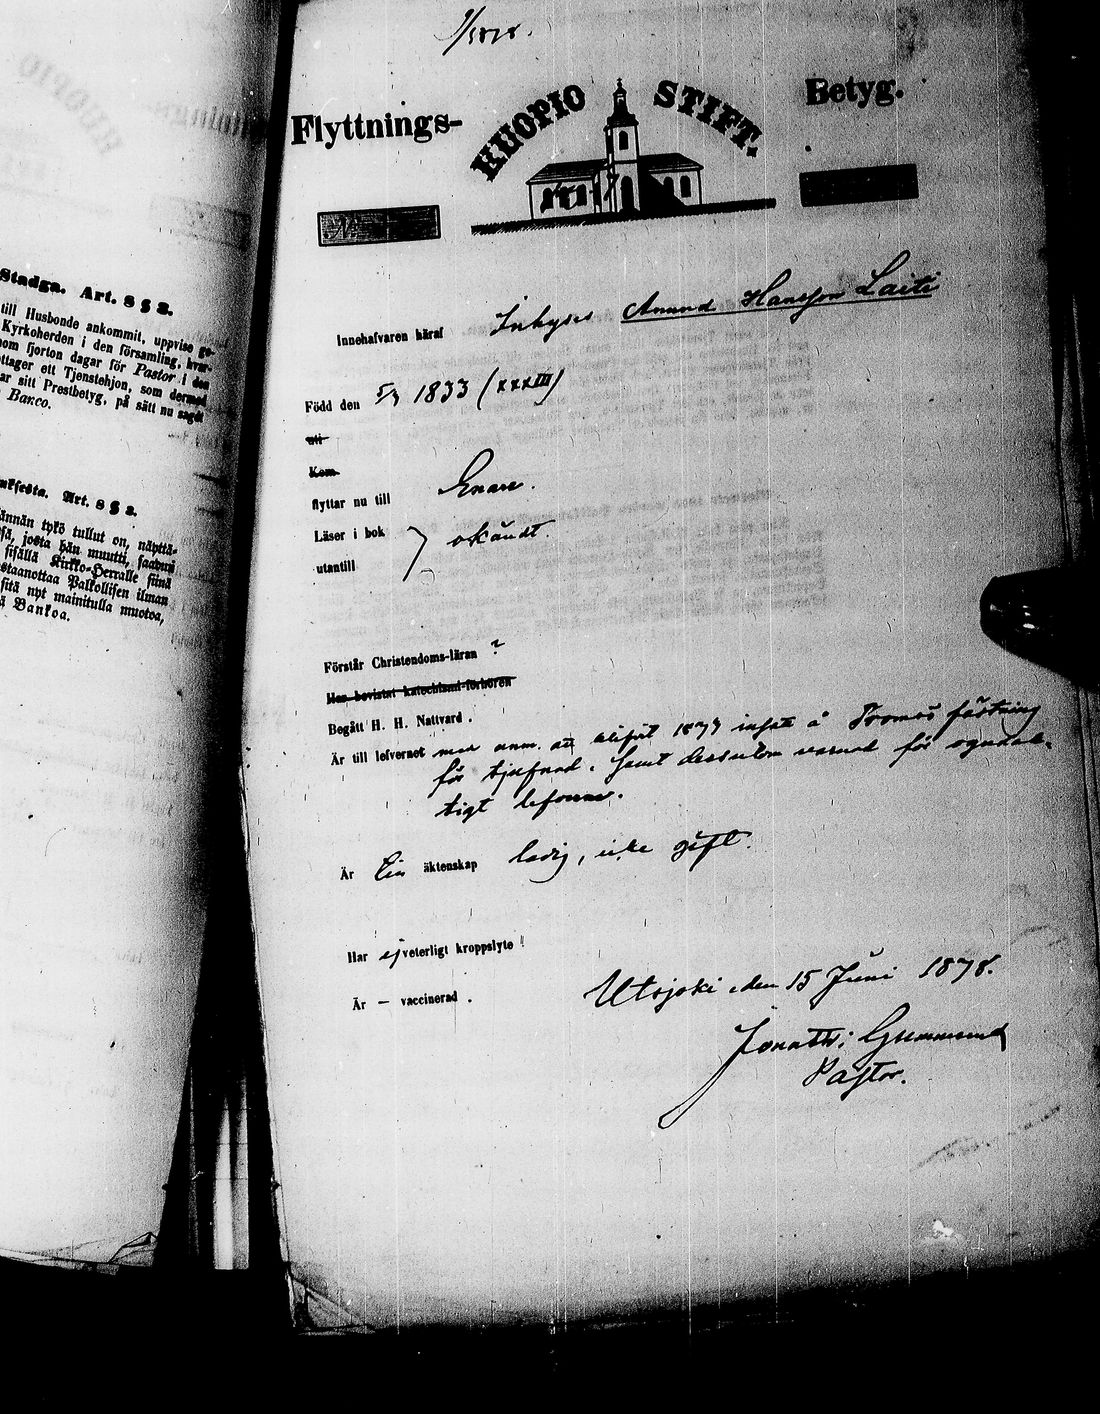 9/1878.
Flyttnings- KUOPIO STIFT. Betyg.
No
Innehafvaren häraf Inhyses Amund Hansson Laiti
Född den 5/3 1833 (XXXIII)
uti
Kom
flyttar nu till Enare.
Läser i bok
utantill } okändt.
Förstår Christendoms-läran ?
Har bevistat katechismi-förhören
Begått H. H. Nattvard .
Är till lefvernet med anm. att blifvit 1873 insatt å Tromsö fästning
för tjufnad. Samt dessutom varnad för ogudak-
tigt lefverne.
Är Ein äktenskap ledig, icke gift.
Har ej veterligt kroppslyte
Är — vaccinerad .
Utsjoki den 15 Juni 1878.
Pastor.
Stadga. Art. 8 § 2.
till Husbonde ankommit, uppvise ge-
Kyrkoherden i den församling, hvar-
om fjorton dagar för Pastor i den
ottager ett Tjenstehjon, som dermed
ar sitt Prestbetyg, på sätt nu sagdt
Banco.
Art. 8 § 2.
ännän tykö tullut on, näyttä-
josta hän muutti, saatuu
sisällä Kirkko-Herralle siinä
staanottaa Palkollisen ilman
sitä nyt mainitulla muotoa,
ä Bankoa.